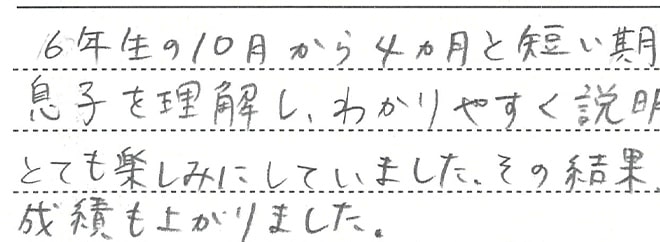 6年生の10月から4ヵ月と短い期
息子を理解し、わかりやすく説明
とても楽しみにしていました。その結果
成績も上がりました。